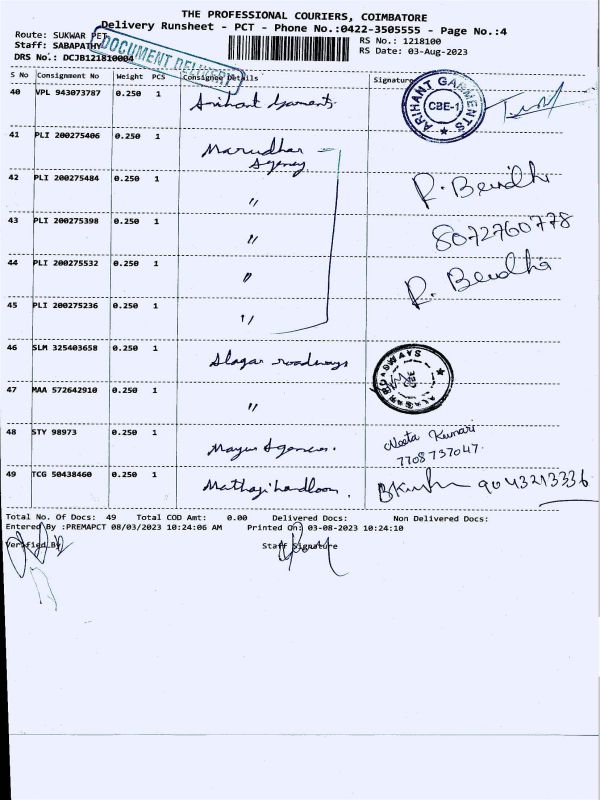 THE PROFESSIONAL COURIERS, COIMBATORE
Delivery Runsheet - PCT - Phone No.:0422-3505555 - Page No.:4
Route: SUKWAR PET
Staff: SABAPATHY
DRS No.: DCJB121810004
DOCUMENT DELIVERY
RS No.: 1218100
RS Date: 03-Aug-2023
S No Consignment No Weight PCS Consignee Details Signature
40 VPL 943073787 0.250 1 Arihant Garments
ARIHANT GARMENTS CBE-1
41 PLI 200275406 0.250 1 Marudhar Agency
42 PLI 200275484 0.250 1 "
43 PLI 200275398 0.250 1 " 8072760778
44 PLI 200275532 0.250 1 "
45 PLI 200275236 0.250 1 "
46 SLM 325403658 0.250 1 Alagar roadways
47 MAA 572642910 0.250 1 "
48 STY 98973 0.250 1 Mayur Agencies. Neeta Kumari
7708737047.
49 TCG 50438460 0.250 1 Mathaji handloom. 9043213336
Total No. Of Docs: 49 Total COD Amt: 0.00 Delivered Docs: Non Delivered Docs:
Entered By :PREMAPCT 08/03/2023 10:24:06 AM Printed On: 03-08-2023 10:24:10
Verified By Staff Signature